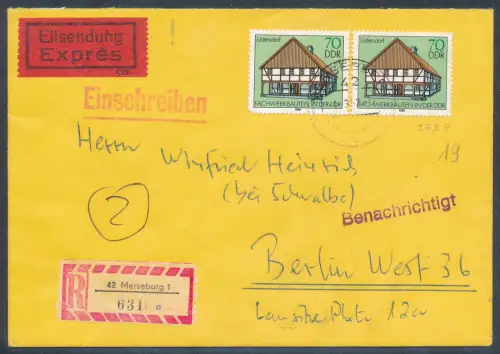 Eilsendung
Exprès
Lüdersdorf
70
DDR
FACHWERKBAUTEN IN DER DDR
70
DDR
FACHWERKBAUTEN IN DER DDR
42
Einschreiben
19
Herrn Winfried Heinrich
(bei Schwalbe)
2
Benachrichtigt
R
42 Merseburg 1
631
Berlin West 36
Lausitzer Platz 12a